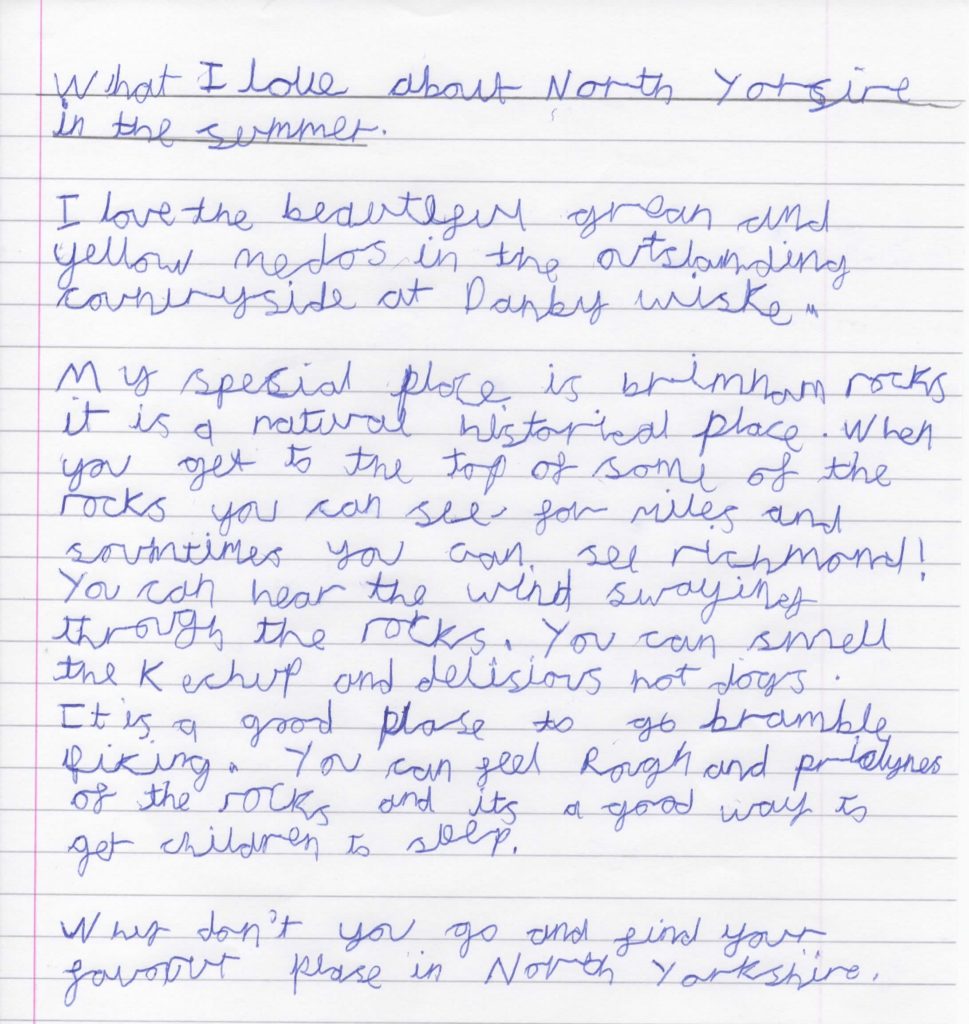 What I love about North Yorsire
in the summer.
I love the beautefull grean and
yellow medos in the outslanding
countryside at Danby wiske.
My special place is brimham rocks
it is a natural historical place. When
you get to the top of some of the
rocks you can see for miles and
somtimes you can see richmond!
You can hear the wind swaying
through the rocks. You can smell
the Kechup and delisious hot dogs.
It is a good plase to go bramble
piking. You can feel Rough and
of the rocks and its a good way to
get children to sleep.
Why don't you go and find your
plase in North Yorkshire.